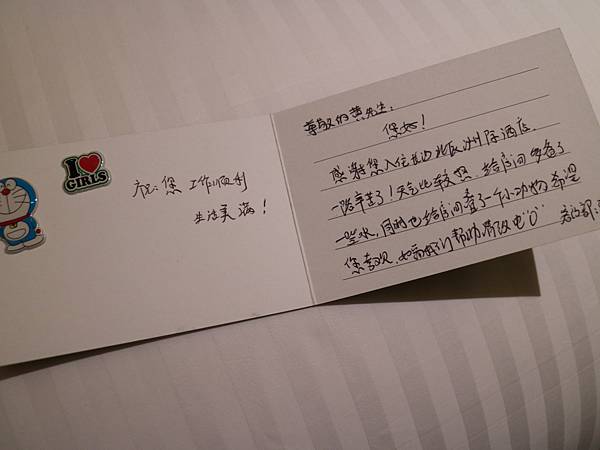 I
GIRLS
祝您工作顺利
生活美满！
尊敬的黄先生：
您好！
感谢您入住长沙北辰洲际酒店，
一路辛苦了！天气比较热，给房间多备了
一些水，同时也给房间叠了一个小动物 希望
您喜欢，如需我们帮助请致电“0” 客房部：